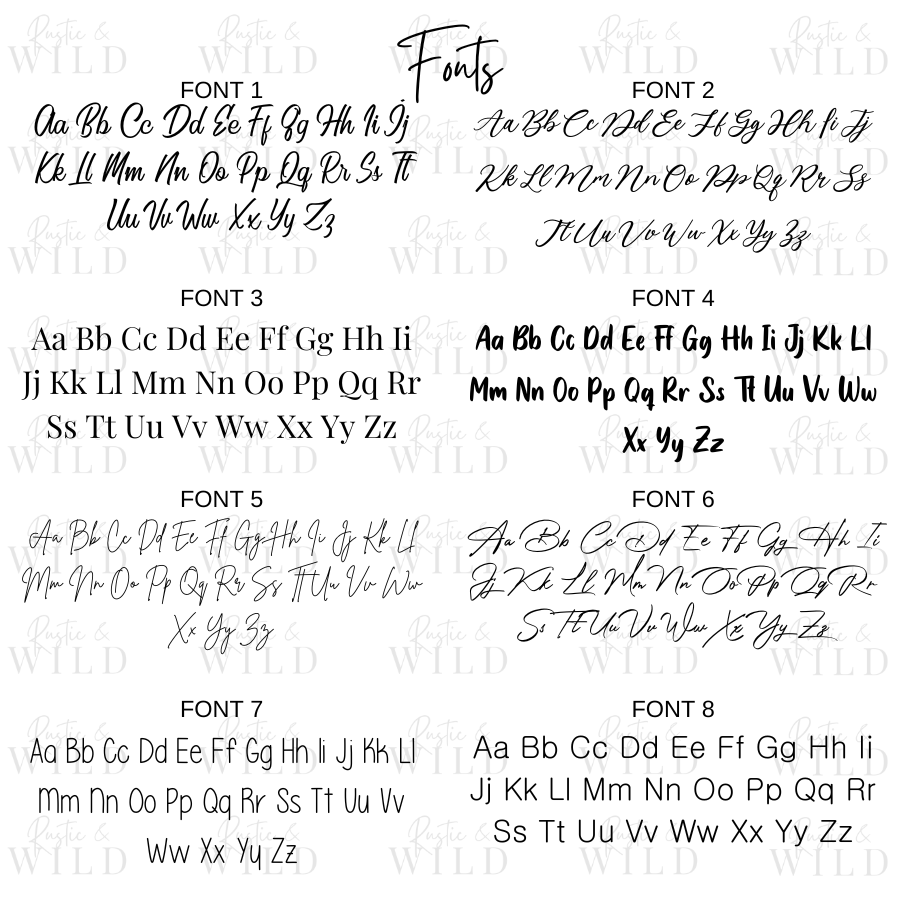 Fonts
FONT 1
Aa Bb Cc Dd Ee Ff Gg Hh Ii Jj
Kk Ll Mm Nn Oo Pp Qq Rr Ss Tt
Uu Vv Ww Xx Yy Zz
FONT 2
Aa Bb Cc Dd Ee Ff Gg Hh Ii Jj
Kk Ll Mm Nn Oo Pp Qq Rr Ss
Tt Uu Vv Ww Xx Yy Zz
FONT 3
Aa Bb Cc Dd Ee Ff Gg Hh Ii
Jj Kk Ll Mm Nn Oo Pp Qq Rr
Ss Tt Uu Vv Ww Xx Yy Zz
FONT 4
Aa Bb Cc Dd Ee Ff Gg Hh Ii Jj Kk Ll
Mm Nn Oo Pp Qq Rr Ss Tt Uu Vv Ww
Xx Yy Zz
FONT 5
Aa Bb Cc Dd Ee Ff Gg Hh Ii Jj Kk Ll
Mm Nn Oo Pp Qq Rr Ss Tt Uu Vv Ww
Xx Yy Zz
FONT 6
Aa Bb Cc Dd Ee Ff Gg Hh Ii
Jj Kk Ll Mm Nn Oo Pp Qq Rr
Ss Tt Uu Vv Ww Xx Yy Zz
FONT 7
Aa Bb Cc Dd Ee Ff Gg Hh Ii Jj Kk Ll
Mm Nn Oo Pp Qq Rr Ss Tt Uu Vv
Ww Xx Yy Zz
FONT 8
Aa Bb Cc Dd Ee Ff Gg Hh Ii
Jj Kk Ll Mm Nn Oo Pp Qq Rr
Ss Tt Uu Vv Ww Xx Yy Zz
Rustic &
WILD